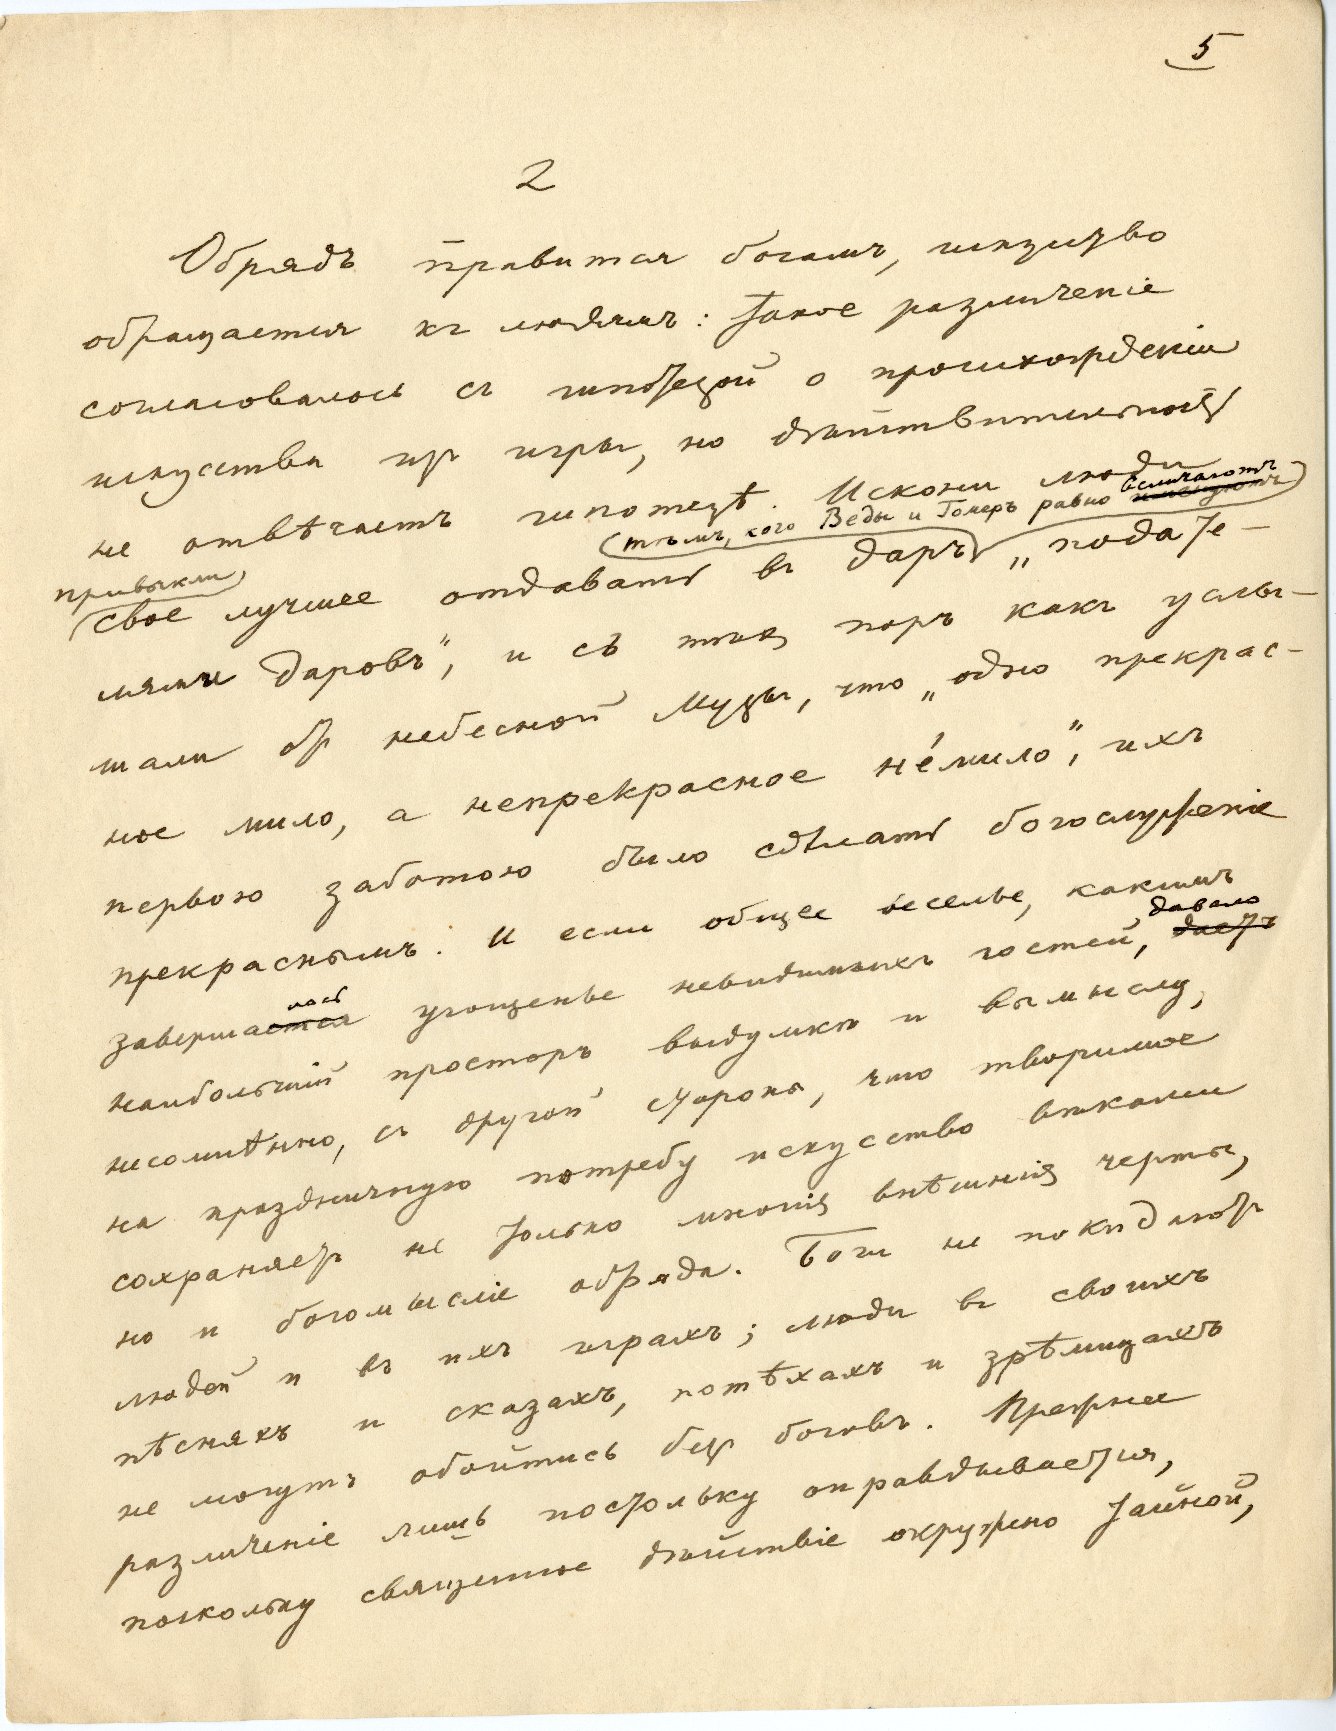 5
2
Обрядъ правится богамъ, искусство
обращается къ людямъ: такое различеніе
согласовалось съ гипотезой о происхожденіи
искусства изъ игры, но дѣйствительность
не отвѣчаетъ гипотезѣ. Искони люди
величаютъ
тѣмъ, кого Веды и Гомеръ равно
привыкли
свое лучшее отдавать въ даръ „подате-
лямъ даровъ“, и съ тѣхъ поръ какъ услы-
шали отъ небесной Музы, что „одно прекрас-
ное мило, а непрекрасное не́мило“, ихъ
первою заботою было сдѣлать богослуженіе
прекраснымъ. И если общее веселье, какимъ
давало
завершалось угощенье невидимыхъ гостей, даетъ
наибольшій просторъ выдумкѣ и вымыслу,
несомнѣнно, съ другой стороны, что творимое
на праздничную потребу искусство вѣками
сохраняетъ не только многія внѣшнія черты,
но и богомысліе обряда. Боги не покидаютъ
людей и въ ихъ играхъ; люди въ своихъ
пѣсняхъ и сказахъ, потѣхахъ и зрѣлищахъ
не могутъ обойтись безъ боговъ. Прежнее
различеніе лишь постольку оправдывается,
поскольку священное дѣйствіе окружено тайной,